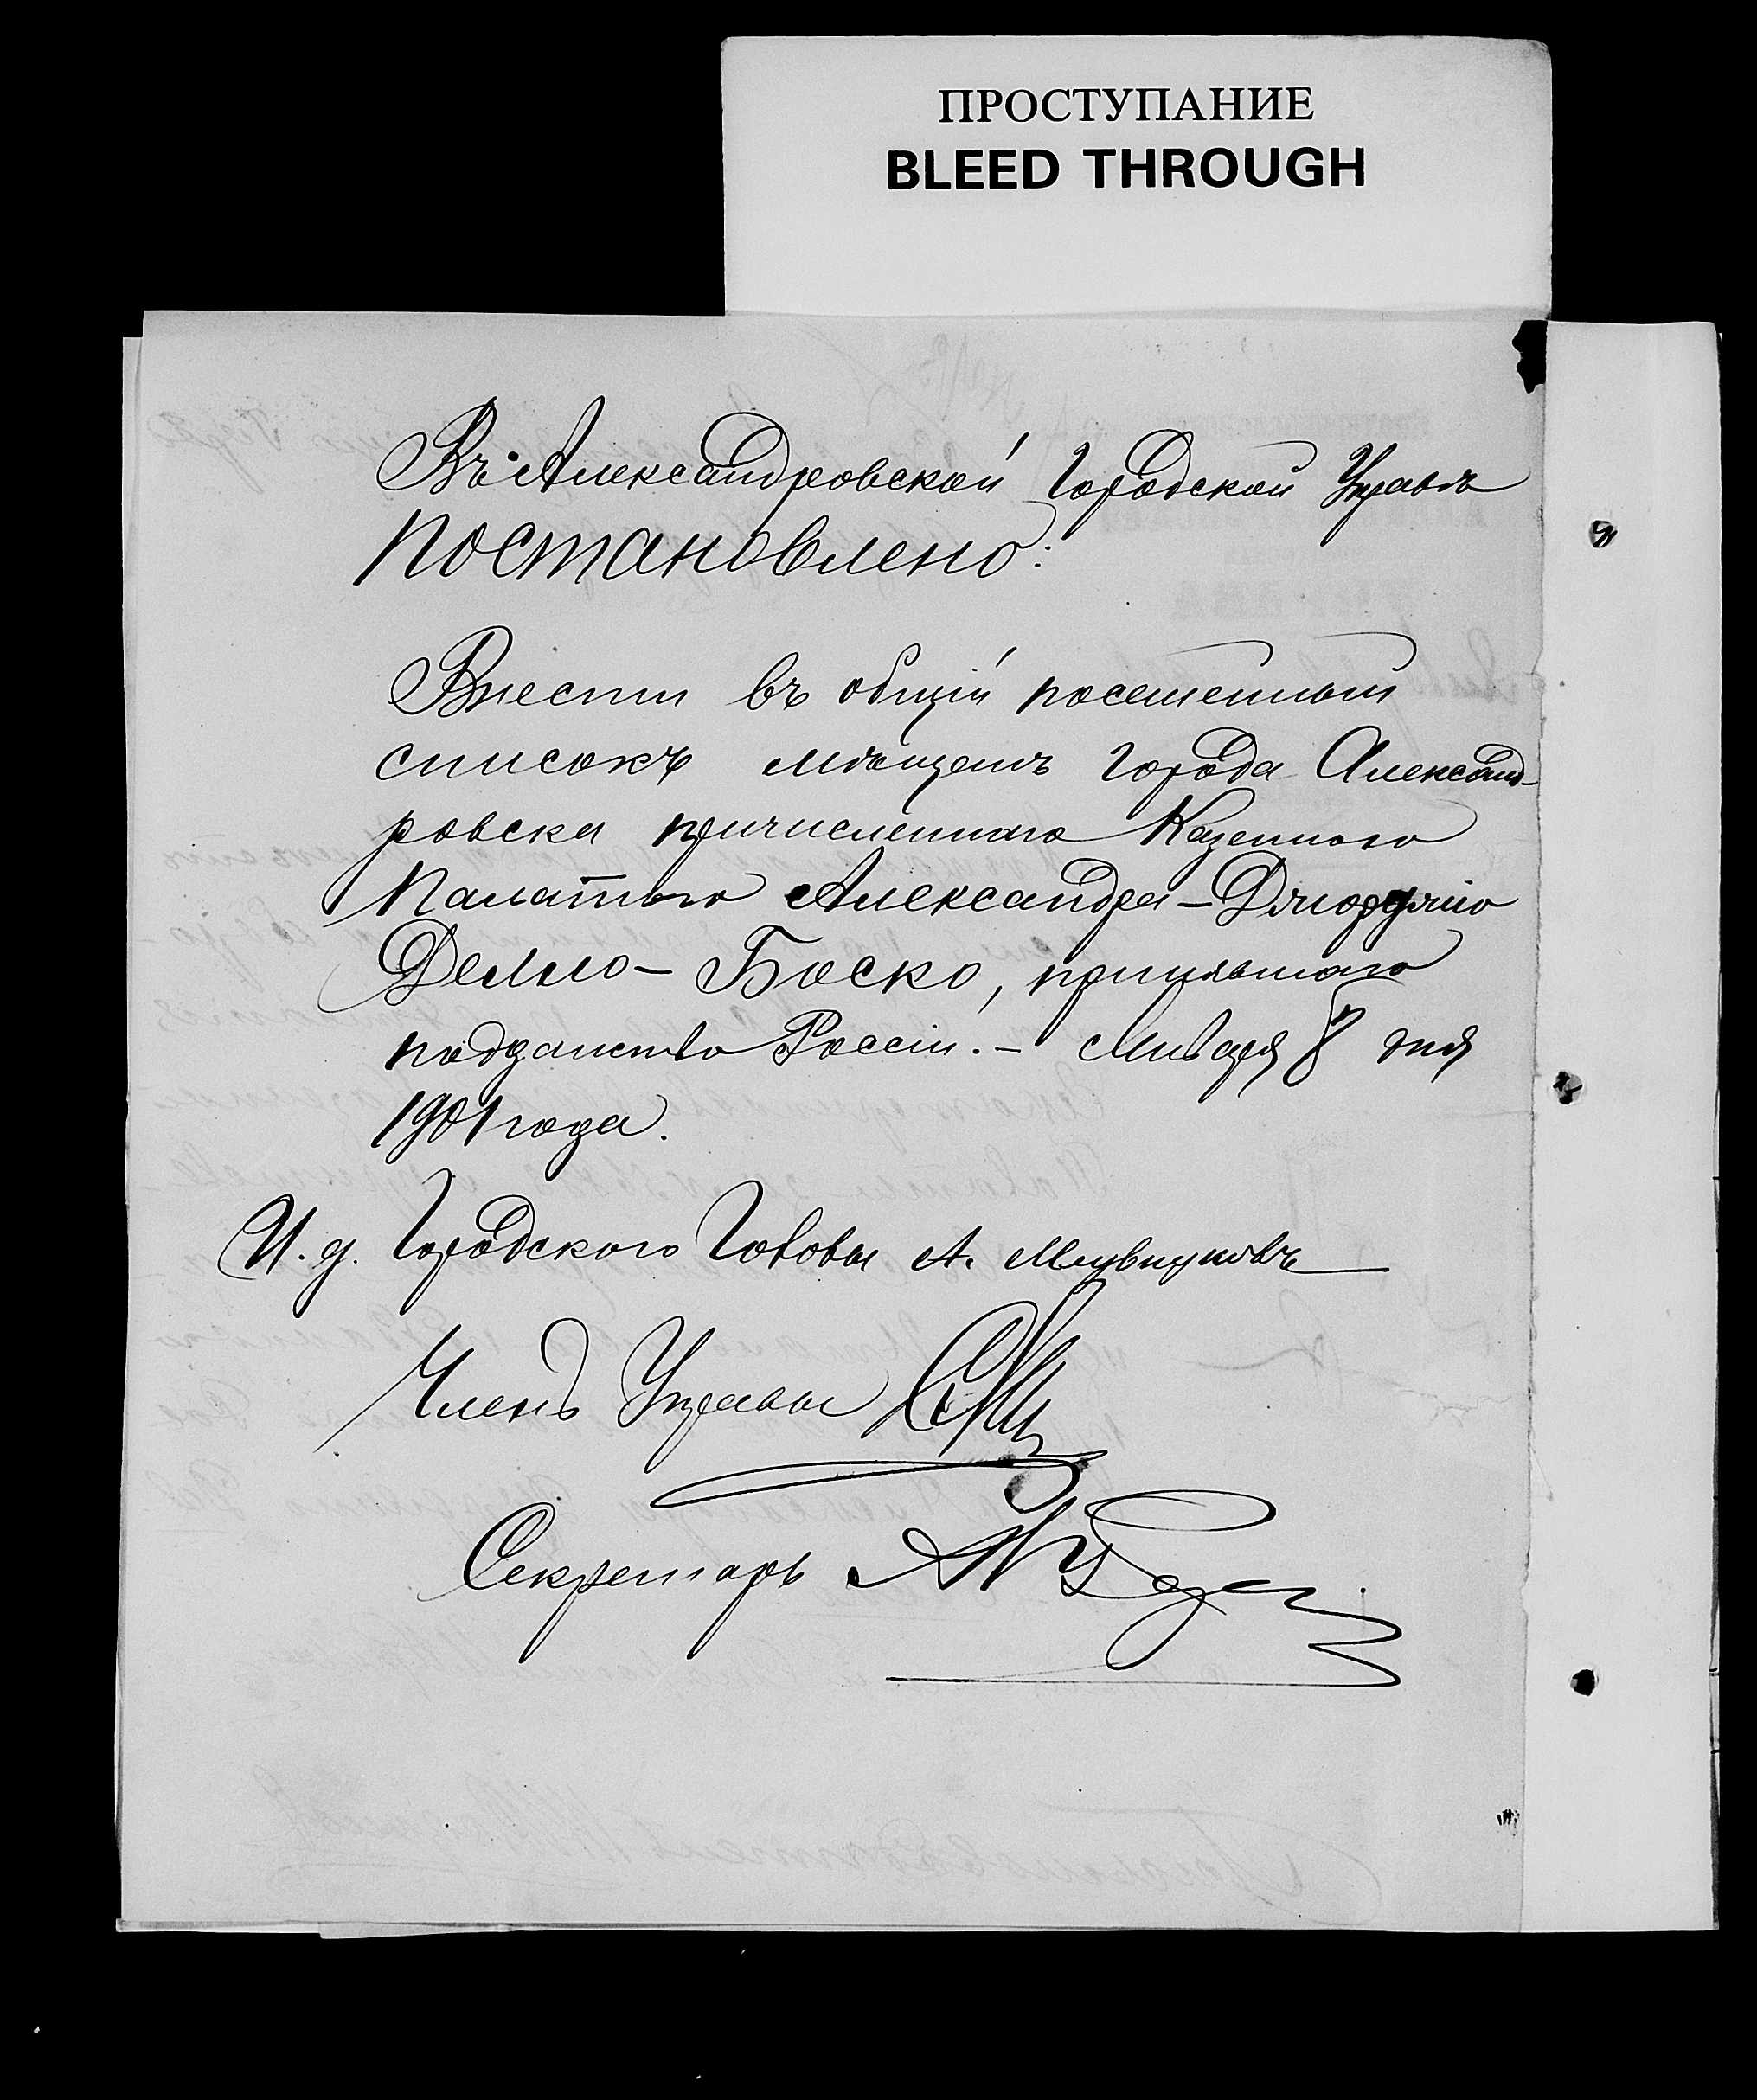 ПРОСТУПАНИЕ
BLEED THROUGH
Въ Александровской Городской Управѣ
постановлено:
Внести въ общій посемейный
списокъ мѣщанъ города Александ-
ровска причисленнаго Казенною
Палатою Александра-Джорджіо
Делло-Боско, принявшаго
подданство Россіи. – Января 8 дня
1901 года.
И. д. Городского Головы А.
Членъ Управы
Секретарь